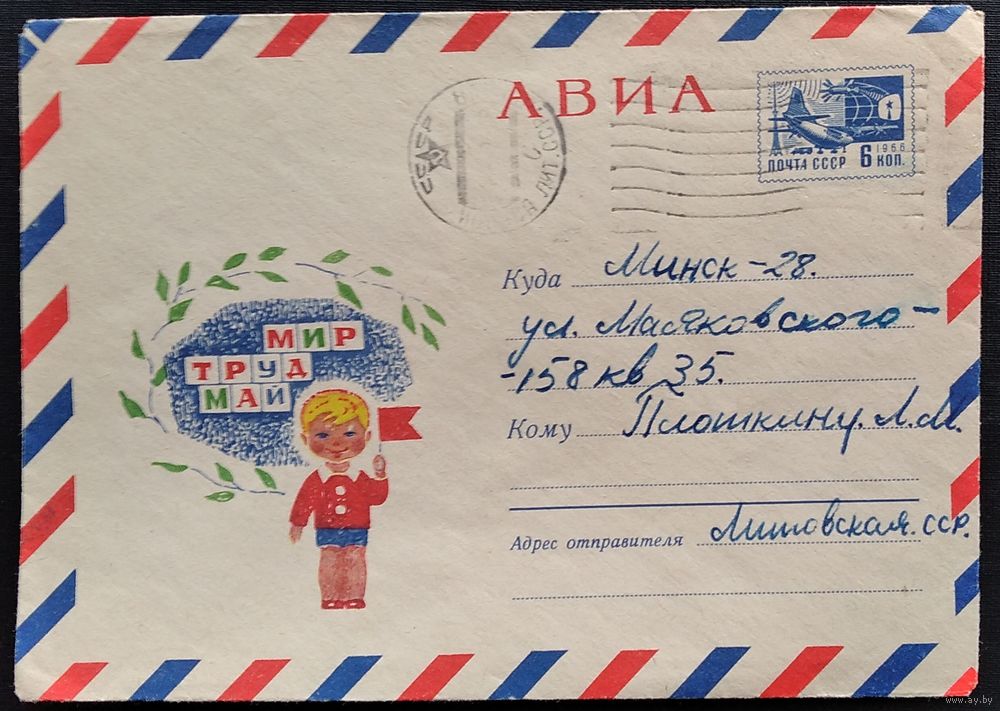 АВИА
АВИА
ЛИТ. ССР.
1966
ПОЧТА СССР 6 КОП.
Куда Минск-28.
ул. Маяковского-
-158 кв 35.
Кому Плоткину. Л.М.
Адрес отправителя Литовская. ССР.
МИР
ТРУД
МАЙ
www.ay.by